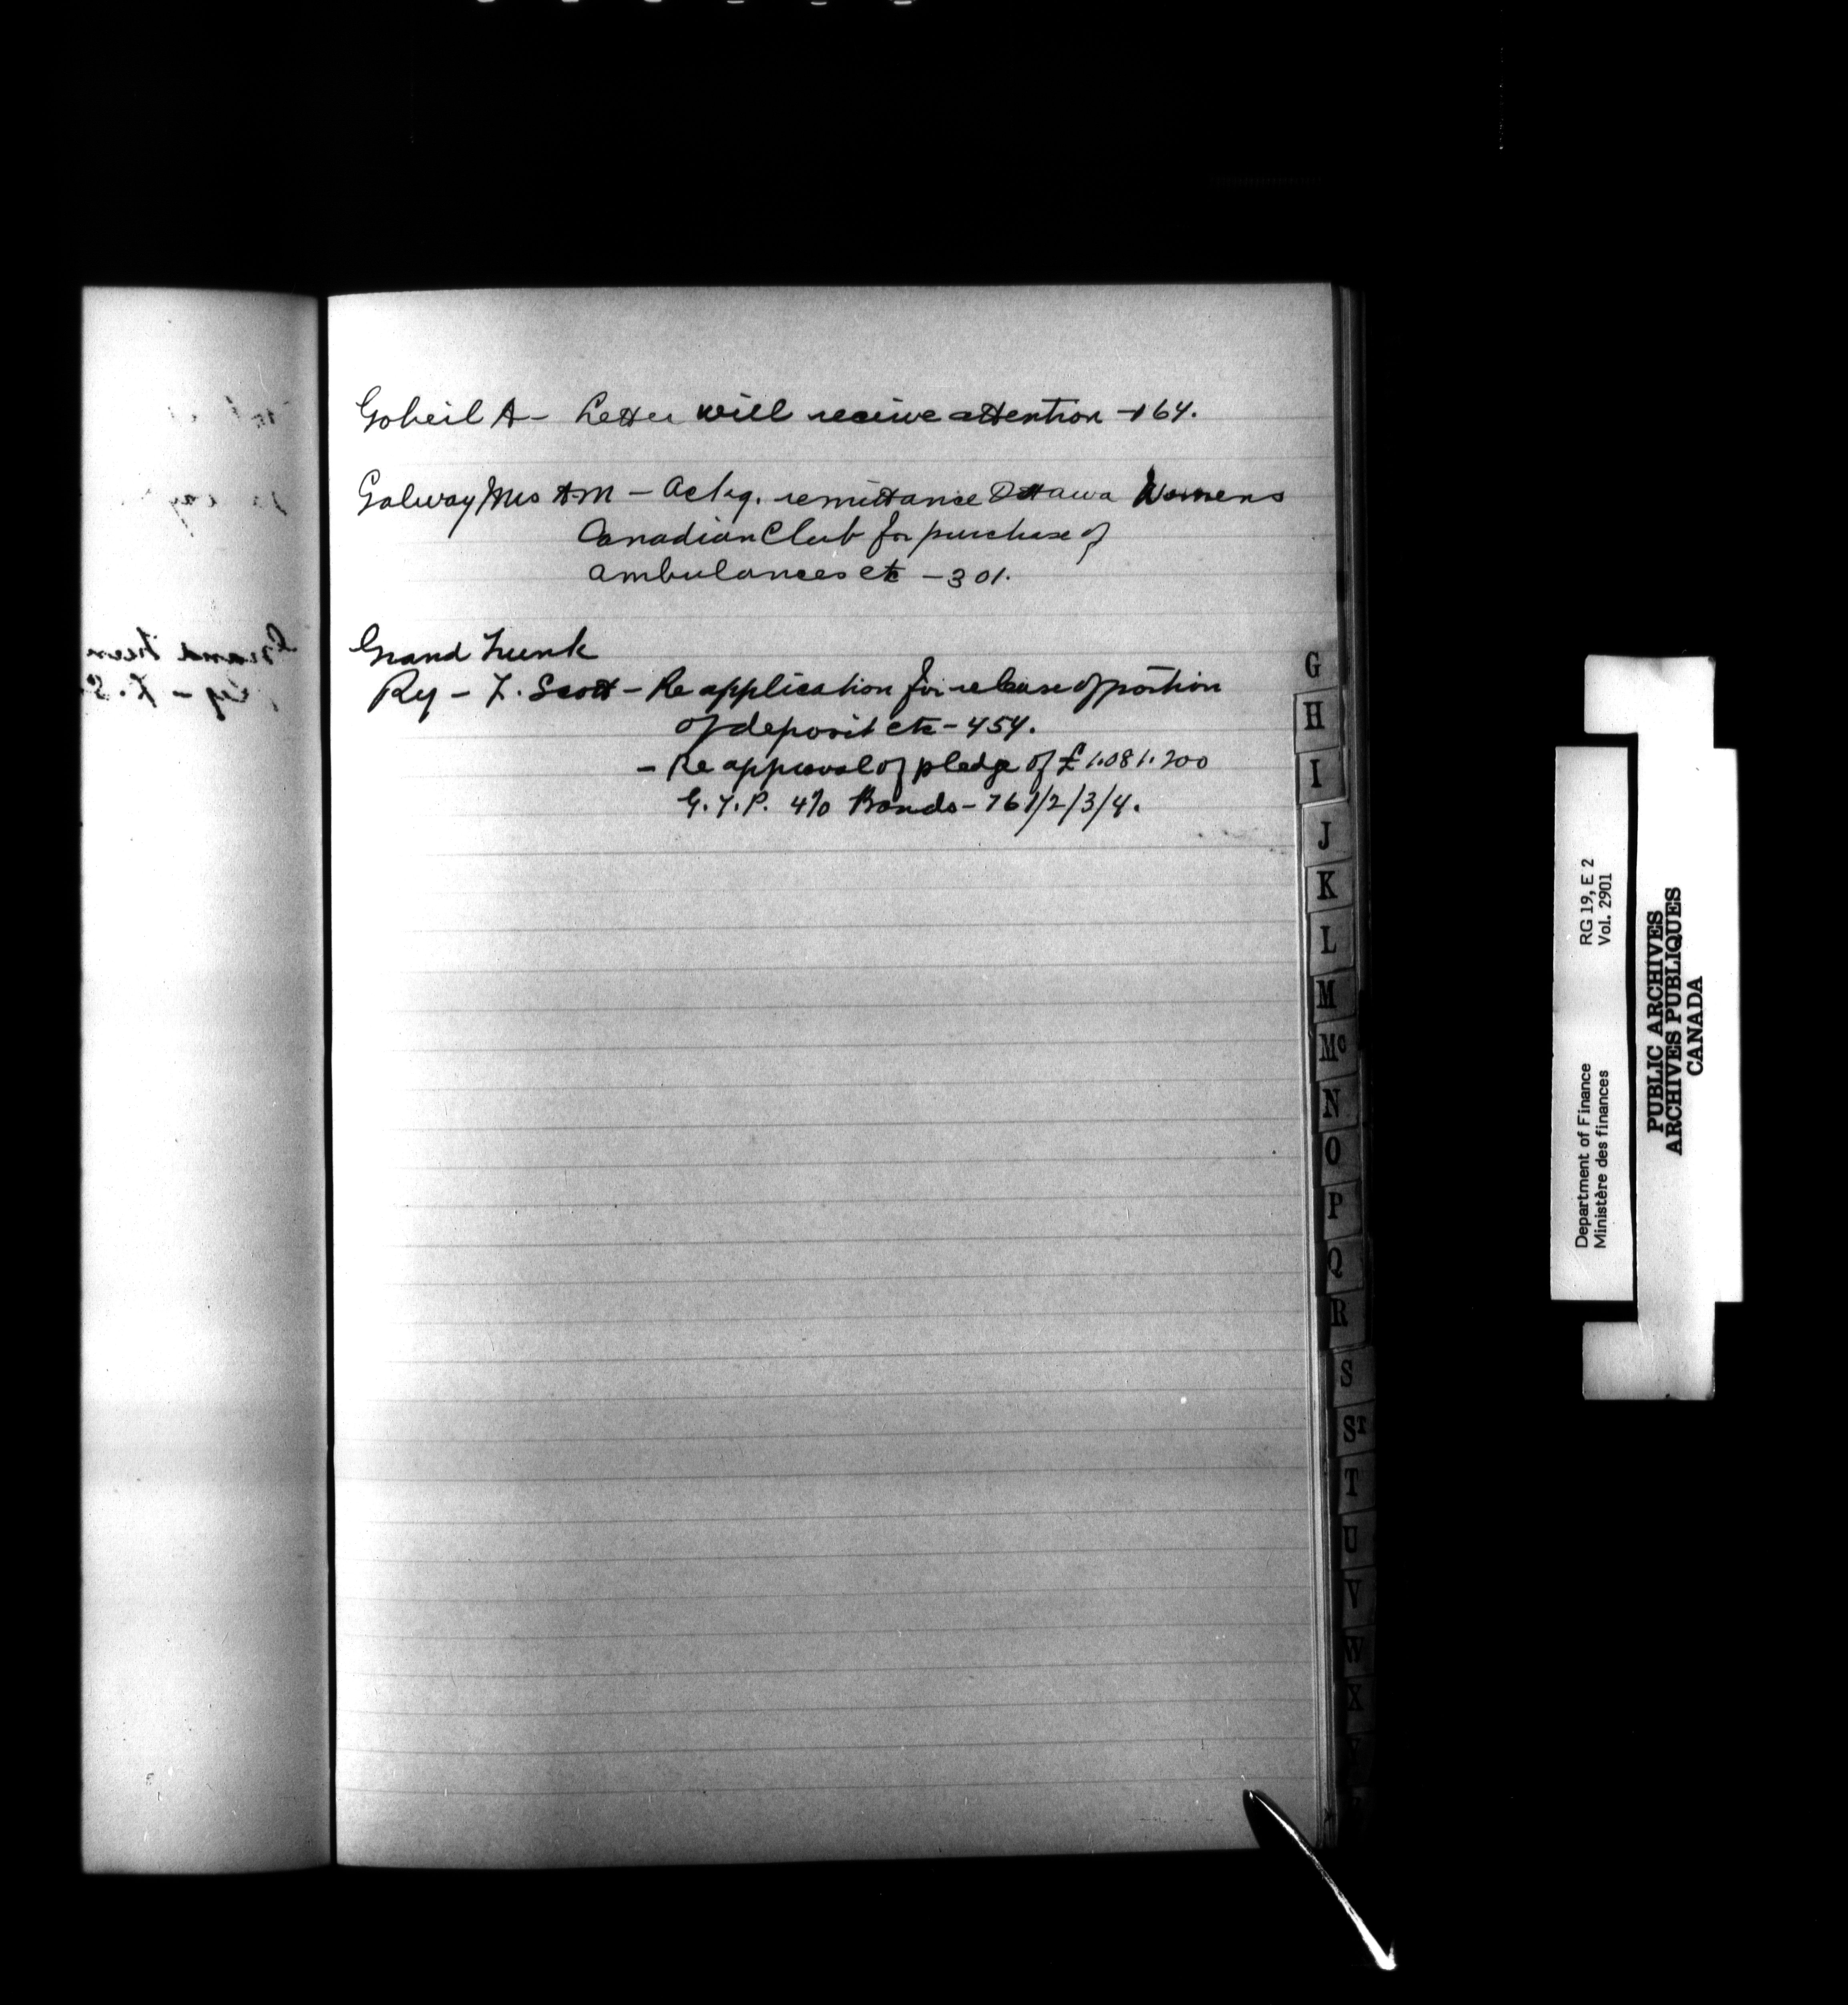 Gobeil A - Letter will receive attention - 164.
Galway Mrs A M - Ackg. remittance Ottawa Womens
Canadian Club for purchase of
ambulances etc - 301.
Grand Trunk
Ry - F. Scott - Re application for release of portion
of deposit etc - 454.
- Re approval of pledge of £1.081.200
G.T.P. 4% Bonds - 761/2/3/4.
G
H
I
J
K
L
M
Mc
N
O
P
Q
R
S
ST
T
U
V
W
X
Department of Finance RG 19, E 2
Ministère des finances Vol. 2901
PUBLIC ARCHIVES
ARCHIVES PUBLIQUES
CANADA